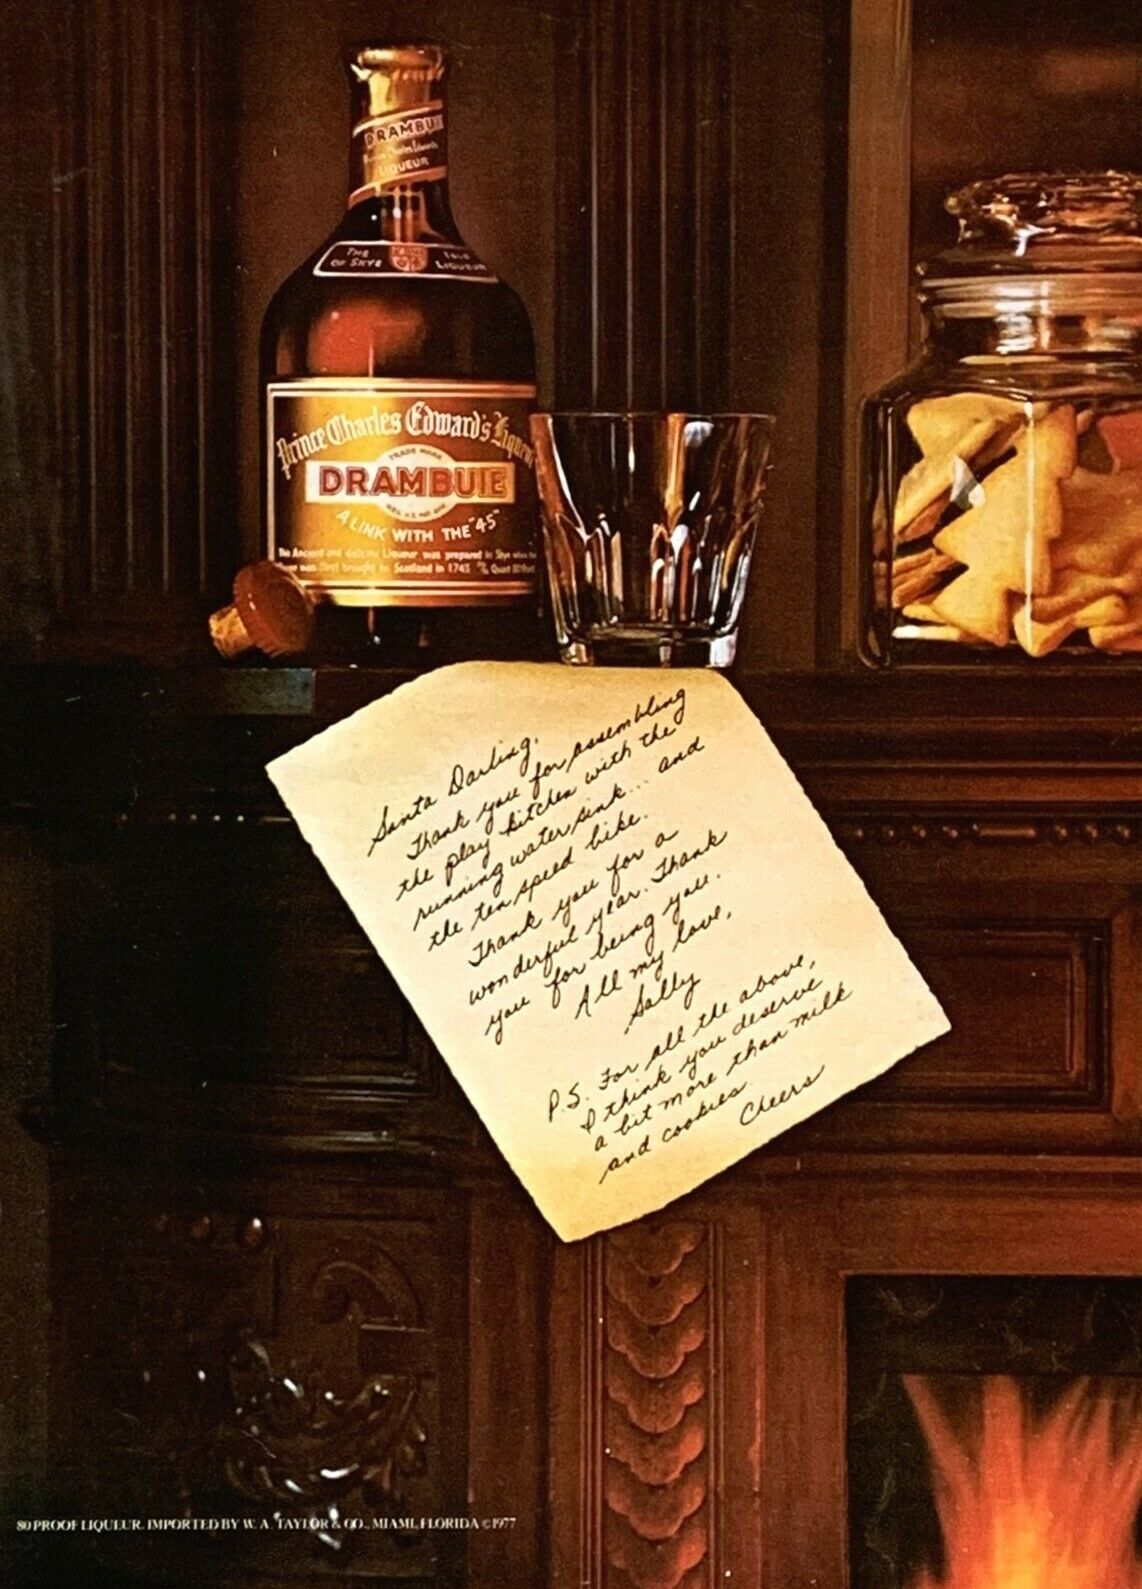 DRAMBUIE
Prince Charles Edward's
LIQUEUR
THE ISLE
OF SKYE LIQUEUR
Prince Charles Edward's Liqueur
TRADE MARK
DRAMBUIE
A LINK WITH THE "45"
The Ancient and delicate Liqueur was prepared in Skye
was first brought to Scotland in 1745 Quart
Santa Darling,
Thank you for assembling
the play kitchen with the
running water sink... and
the ten speed bike.
Thank you for a
wonderful year. Thank
you for being you.
All my love,
Sally
P.S. For all the above,
I think you deserve
a bit more than milk
and cookies
Cheers
80 PROOF LIQUEUR. IMPORTED BY W. A. TAYLOR & CO., MIAMI, FLORIDA © 1977